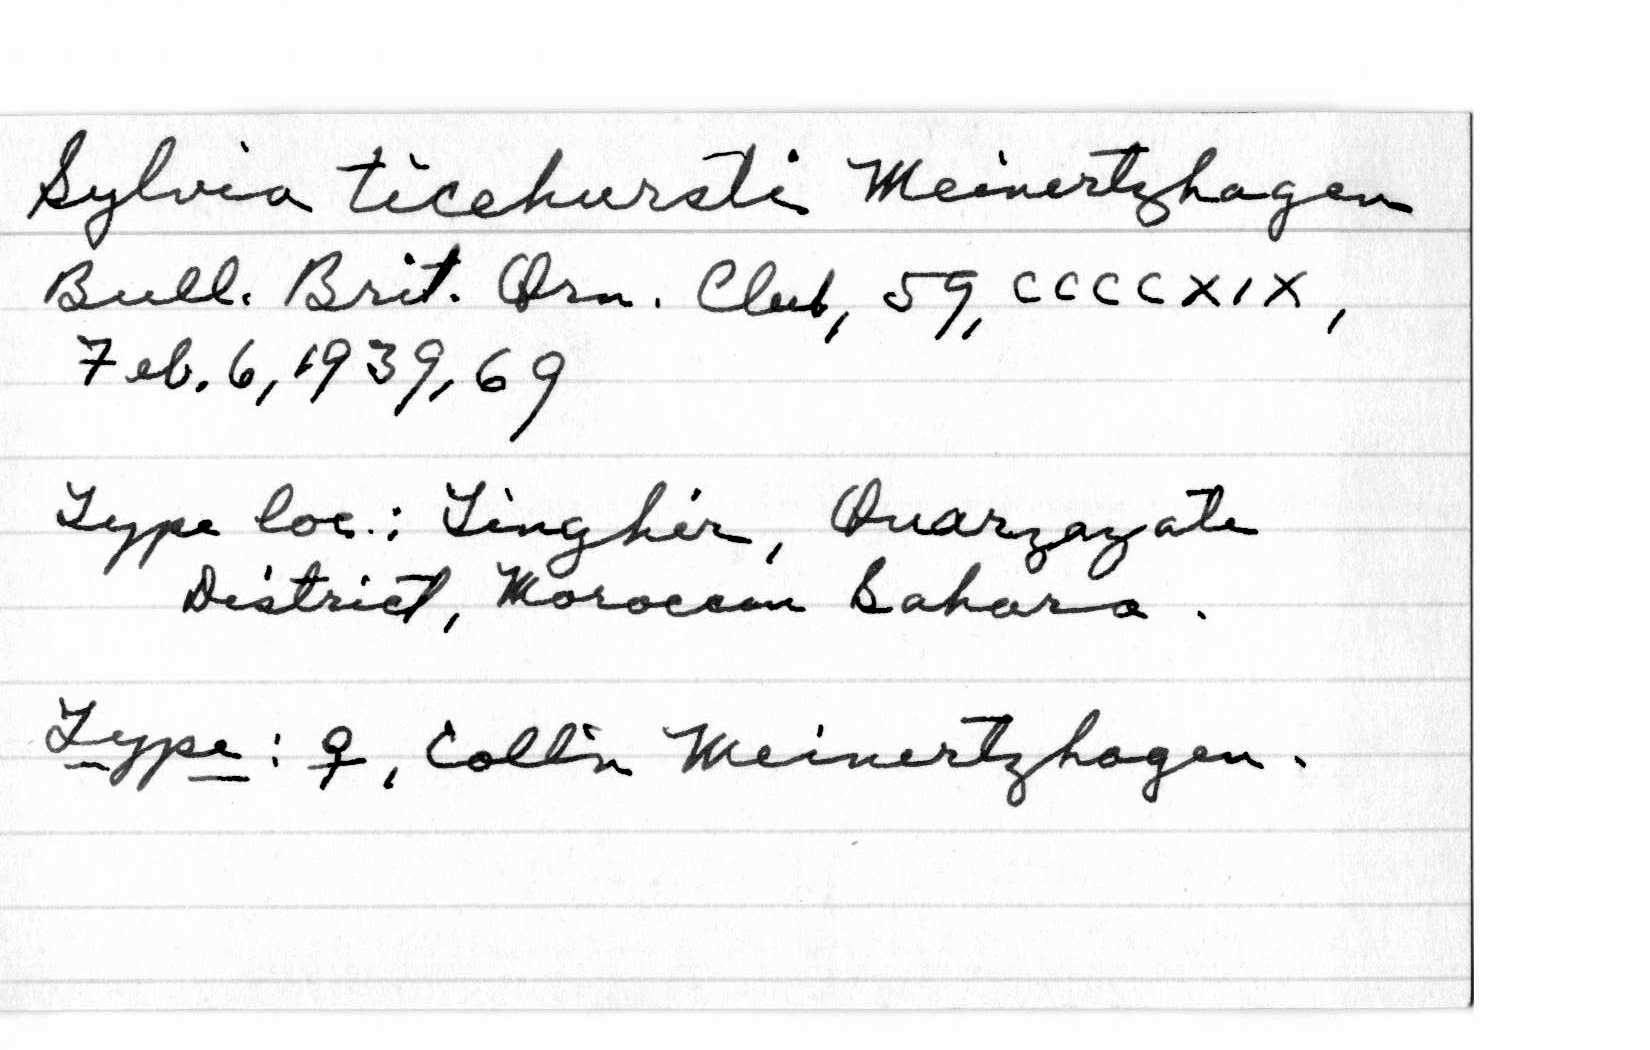 Sylvia ticehursti Meinertzhagen
Bull. Brit. Orn. Club, 59, CCCCXIX,
Feb. 6, 1939, 69
Type loc.: Tinghir, Ouarzazate
District, Moroccan Sahara.
Type: ♀, Coll'n Meinertzhagen.